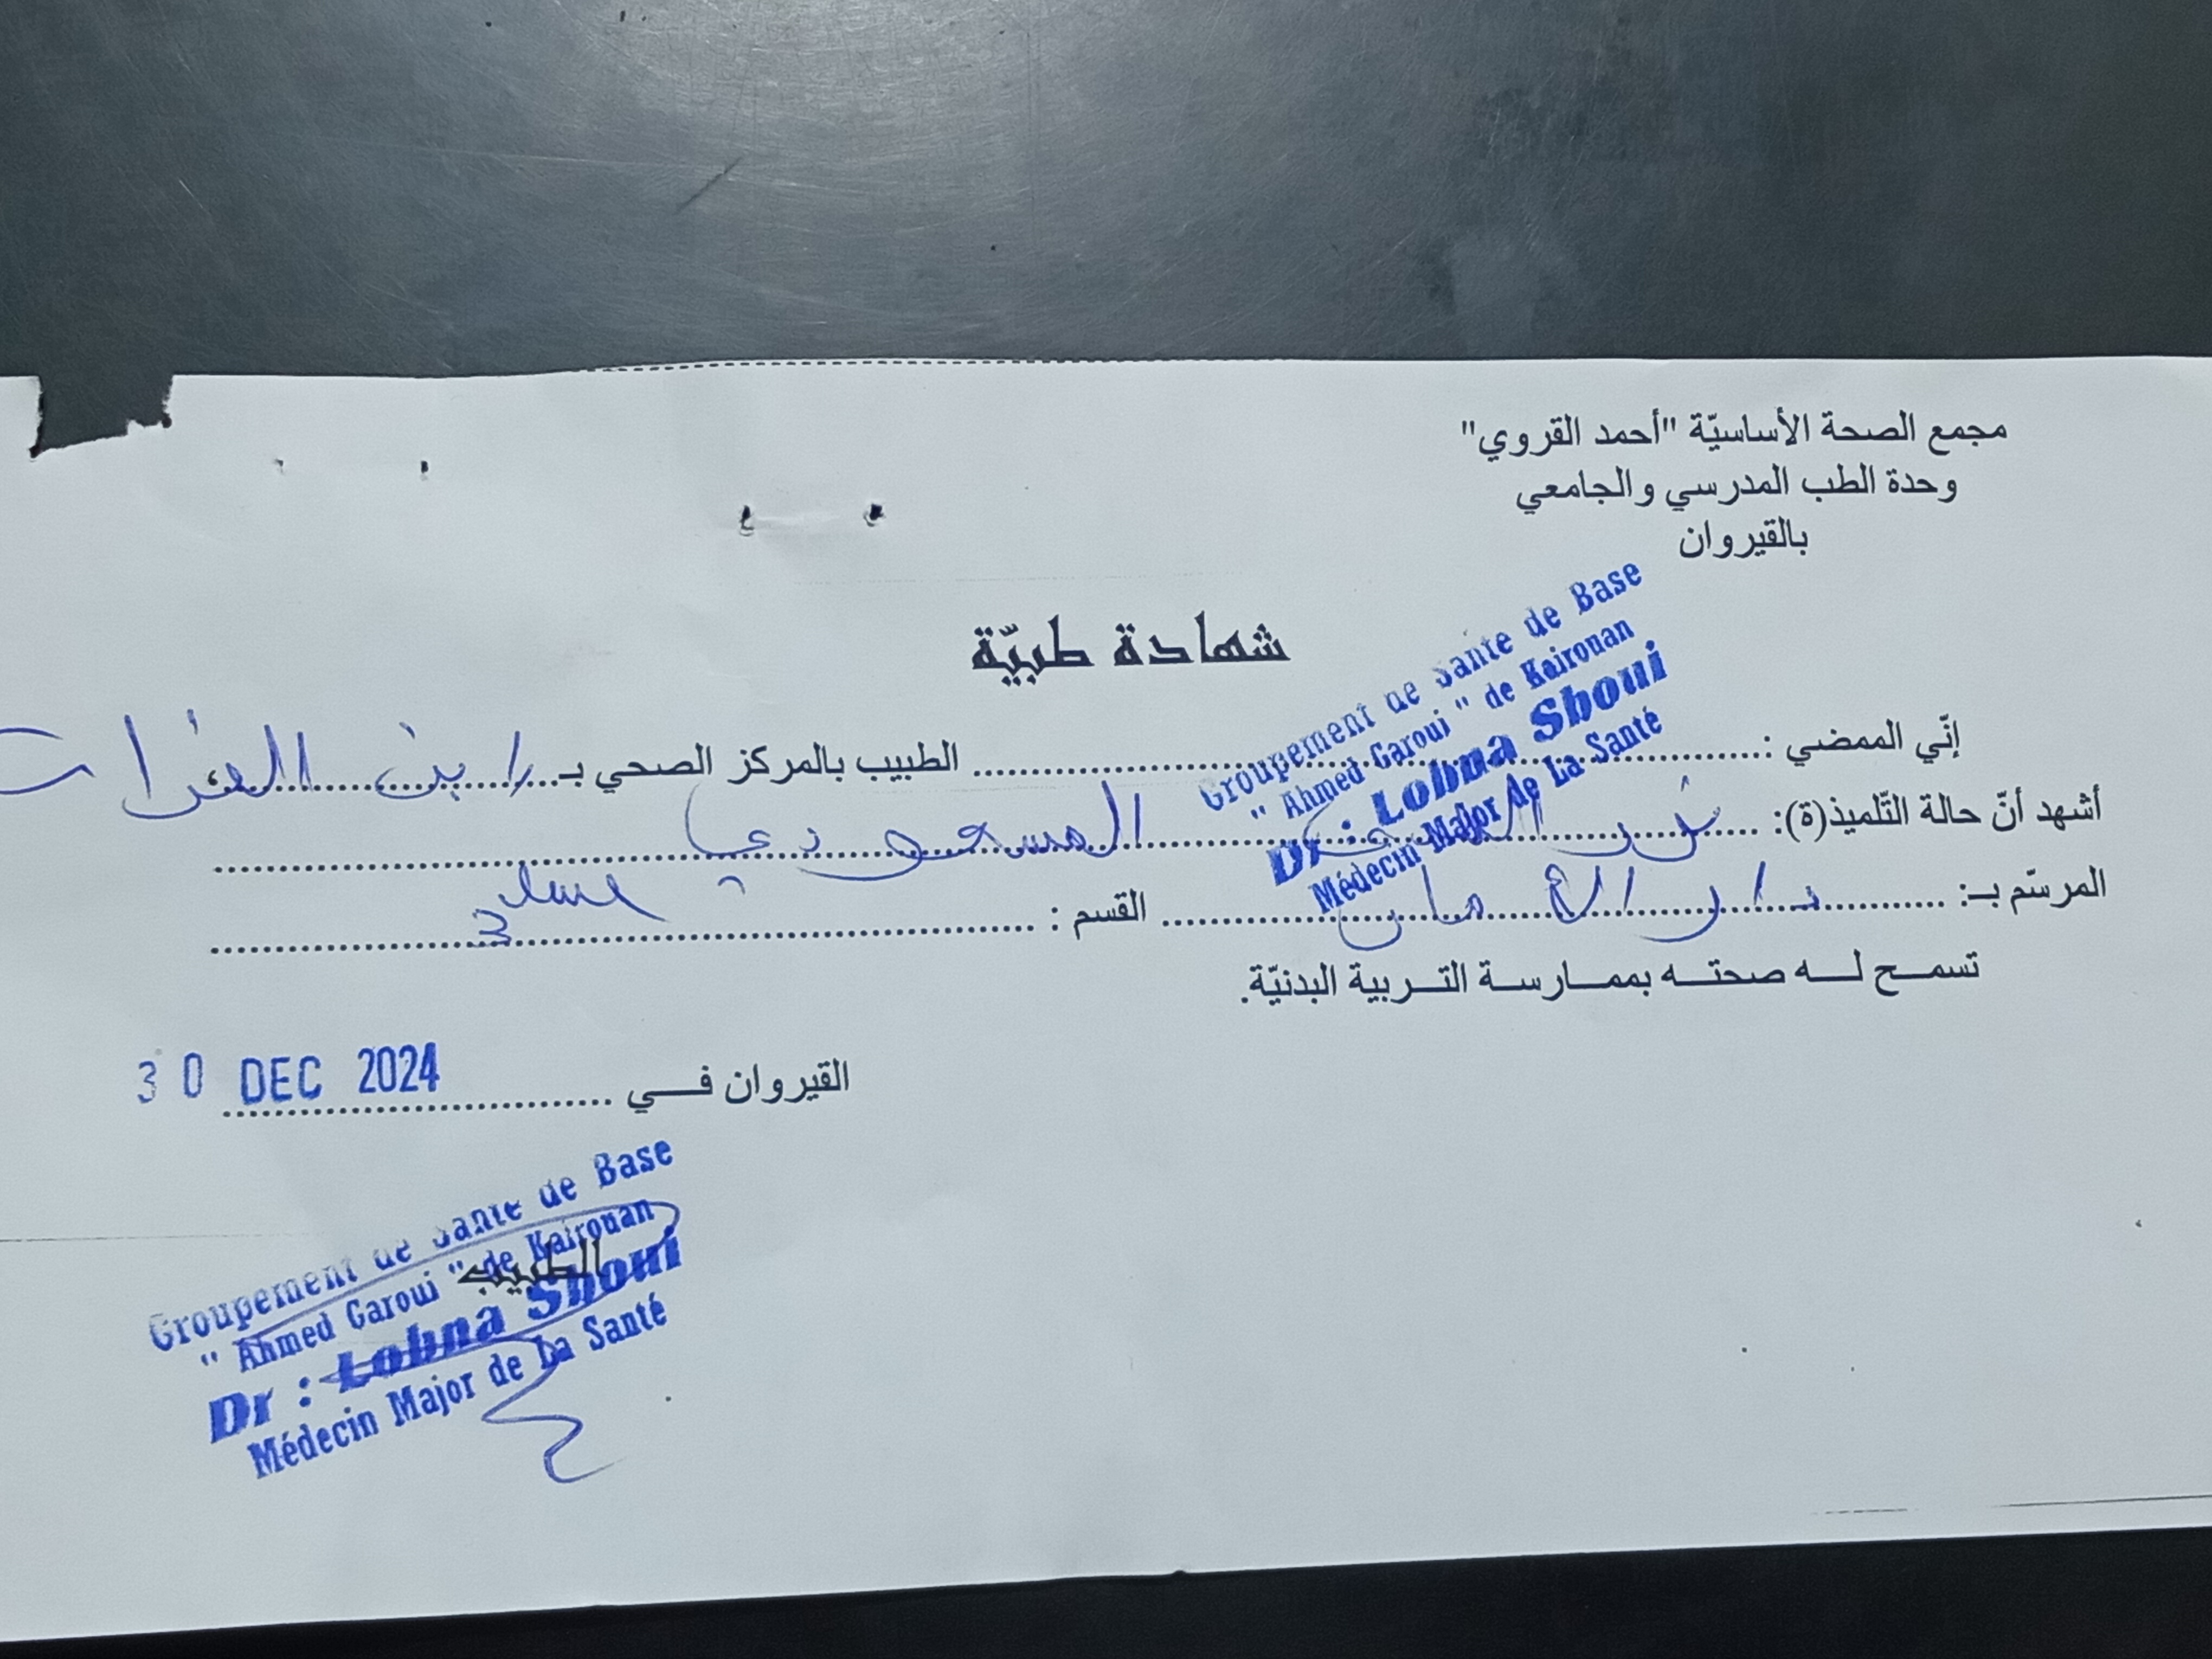 مجمع الصحة الأساسيّة "أحمد القروي"
وحدة الطب المدرسي والجامعي
بالقيروان
شهادة طبيّة
إنّي الممضي : الطبيب بالمركز الصحي بـ ابن الفرات
Groupement de Santé de Base
" Ahmed Garoui " de Kairouan
Dr : Lobna Sboui
Médecin Major de La Santé
أشهد أنّ حالة التّلميذ(ة): المسعودي
المرسّم بـ: دار الأمان القسم : 3
تسمح له صحته بممارسة التربية البدنيّة.
القيروان في 30 DEC 2024
الطبيب
Groupement de Santé de Base
" Ahmed Garoui " de Kairouan
Dr : Lobna Sboui
Médecin Major de La Santé